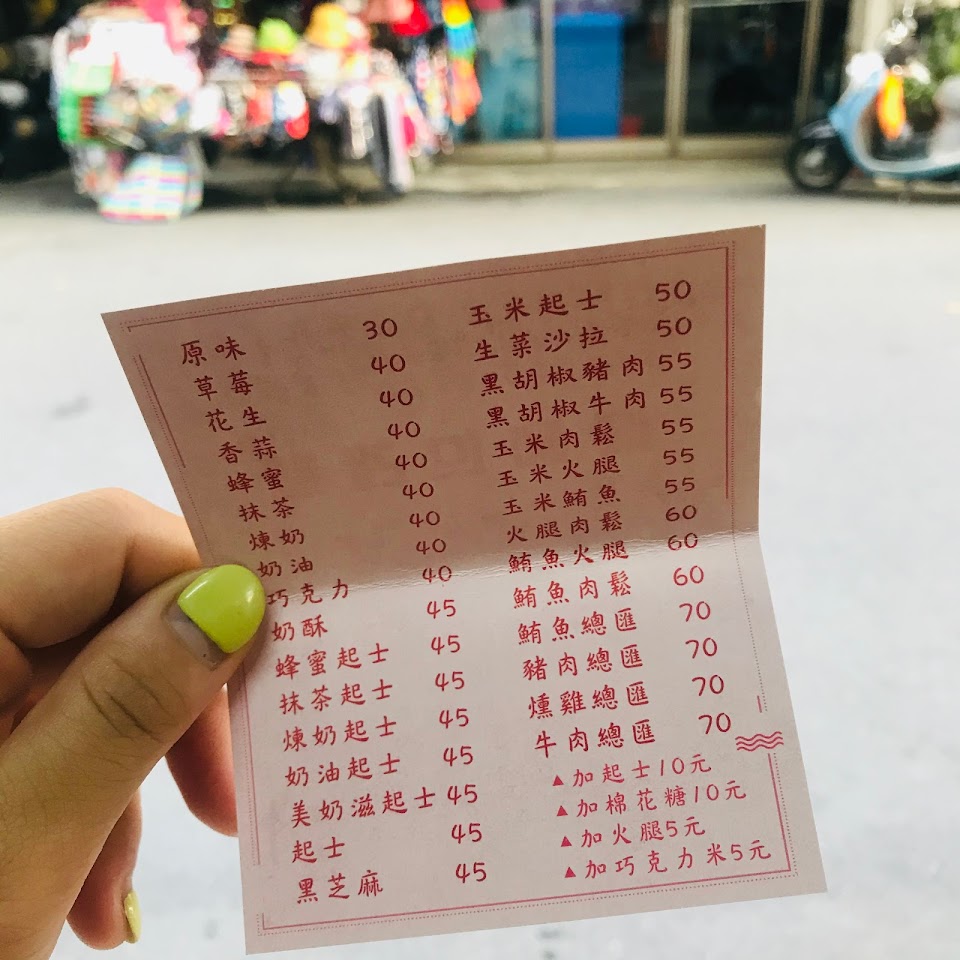 原味 30
草莓 40
花生 40
香蒜 40
蜂蜜 40
抹茶 40
煉奶 40
奶油 40
巧克力 40
奶酥 45
蜂蜜起士 45
抹茶起士 45
煉奶起士 45
奶油起士 45
美奶滋起士 45
起士 45
黑芝麻 45
玉米起士 50
生菜沙拉 50
黑胡椒豬肉 55
黑胡椒牛肉 55
玉米肉鬆 55
玉米火腿 55
玉米鮪魚 55
火腿肉鬆 60
鮪魚火腿 60
鮪魚肉鬆 60
鮪魚總匯 70
豬肉總匯 70
燻雞總匯 70
牛肉總匯 70
▲加起士10元
▲加棉花糖10元
▲加火腿5元
▲加巧克力米5元